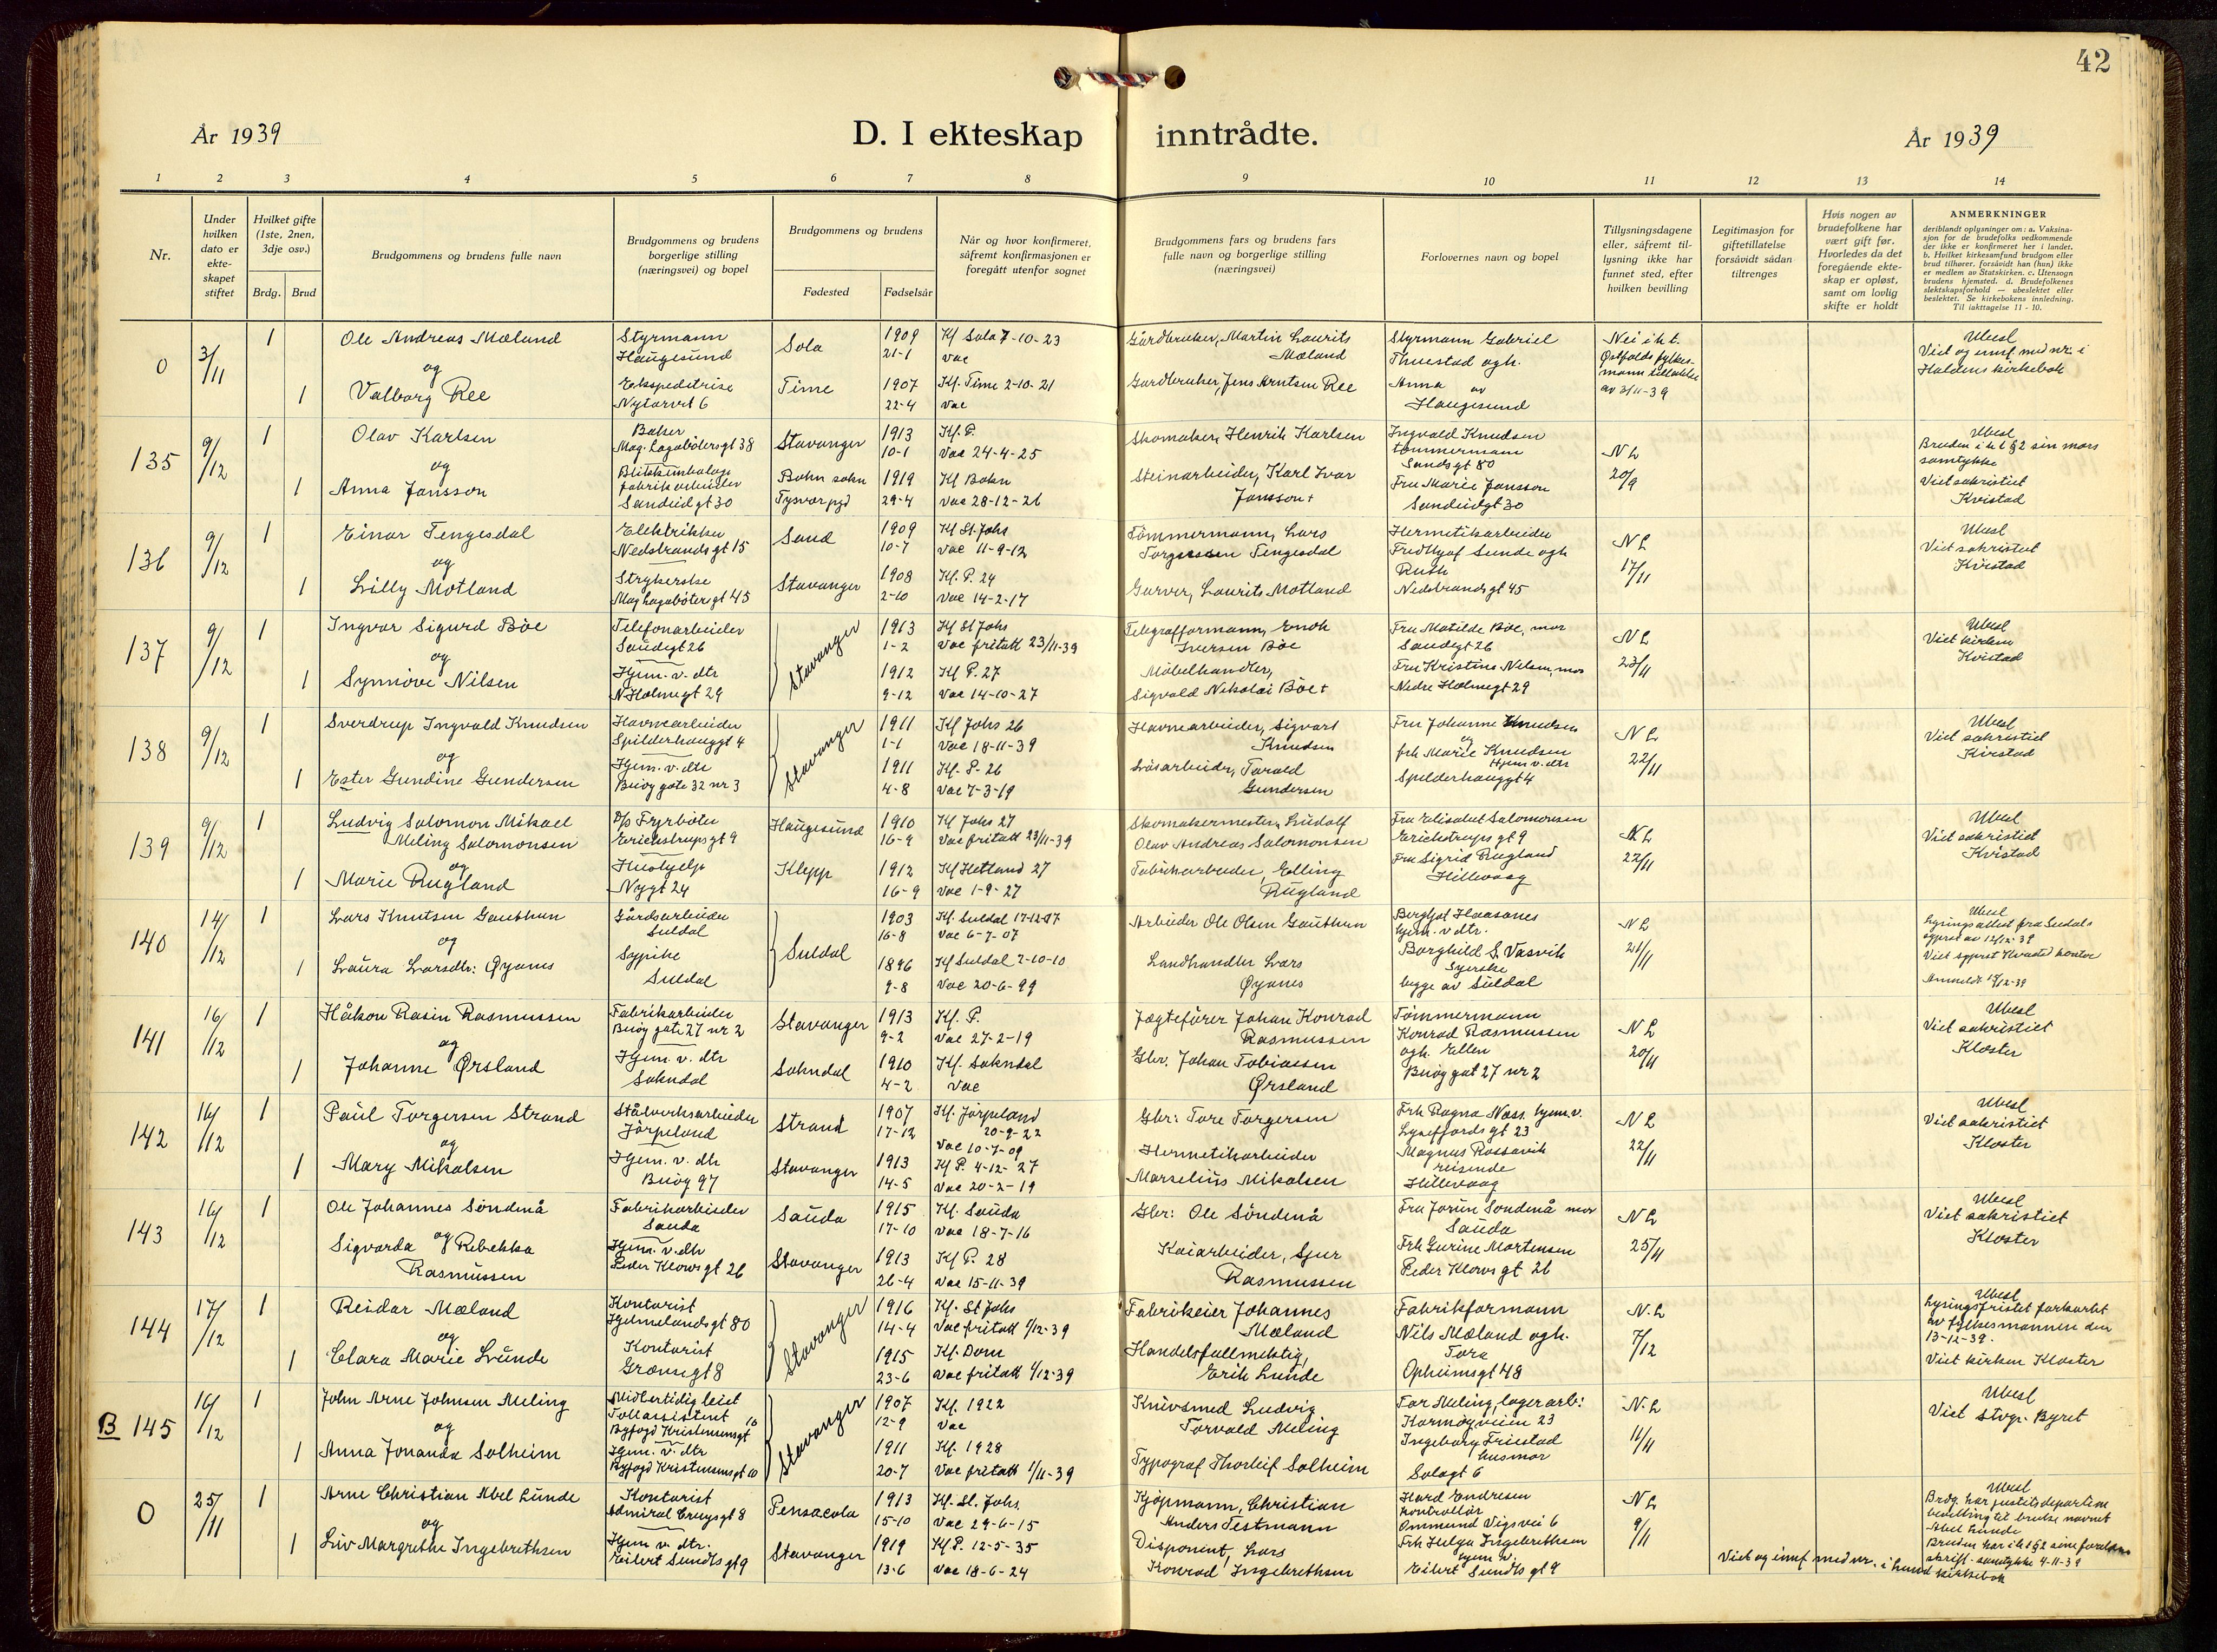 42
År 1939
D. I ekteskap inntrådte.
År 1939
1 2 3 4 5 6 7 8 9 10 11 12 13 14
Nr.
Under hvilken dato er ekteskapet stiftet
Hvilket gifte (1ste, 2nen, 3dje osv.)
Brdg. Brud
Brudgommens og brudens fulle navn
Brudgommens og brudens borgerlige stilling (næringsvei) og bopel
Brudgommens og brudens
Fødested Fødselsår
Når og hvor konfirmeret, såfremt konfirmasjonen er foregått utenfor sognet
Brudgommens fars og brudens fars fulle navn og borgerlige stilling (næringsvei)
Forlovernes navn og bopel
Tillysningsdagene eller, såfremt tillysning ikke har funnet sted, efter hvilken bevilling
Legitimasjon for giftetillatelse forsåvidt sådan tiltrenges
Hvis nogen av brudefolkene har vært gift før. Hvorledes da det foregående ekteskap er opløst, samt om lovlig skifte er holdt
ANMERKNINGER
deriblandt oplysninger om: a. Vaksinasjon for de brudefolks vedkommende der ikke er konfirmeret her i landet. b. Hvilket kirkesamfund brudgom eller brud tilhører, forsåvidt han (hun) ikke er medlem av Statskirken. c. Utensogn brudens hjemsted. d. Brudefolkenes slektskapsforhold — ubeslektet eller beslektet. Se kirkebokens innledning. Til iakttagelse 11 - 10.
0 3/11 1 Ole Andreas Mæland Styrmann Haugesund Sola 1909 21-1 Kf Sola 7-10-23 vac Gårdbruker, Martin Laurits Mæland Styrmann Gabriel Thuestad ogh. Nei i h.t. Østfolds fylkesmann tillatelse av 3/11-39 Ubesl Viet og innf. med nr. i Haldens kirkebok
og
1 Valborg Ree Ekspeditrise Nytorvet 6 Time 1907 22-4 Kf. Time 2-10-21 vac Gardbruker, Jens Arntsen Ree Anna av Haugesund
135 9/12 1 Olav Karlsen Baker Mag. Lagabøtersgt 38 Stavanger 1913 10-1 Kf. P. Vac 24-4-25 Skomaker, Henrik Karlsen Ingvald Knudsen tømmermann Sandsgt 80 NL 20/9 Ubesl Bruden i h t §2 sin mors samtykke Viet sakristiet Kvistad
og
1 Anna Jansson fabrikarbeider Sandeidgt 30 Bokn sokn Tysvær pgd 1919 29-4 Kf Bokn Vac 28-12-26 Steinarbeider, Karl Ivar Jansson + Fru Marie Jansson Sandeidgt 30
136 9/12 1 Einar Tengesdal Elektriker Nedstrandsgt 15 Sand 1909 10-7 Kf St. Johs Vac 11-9-12 Tømmermann, Lars Torgersen Tengesdal Hermetikarbeider Fridthjof Sunde ogh NL 17/11 Ubesl Viet sakristiet Kvistad
og
1 Lilly Motland Strykerske Mag Lagabøtersgt 45 Stavanger 1908 2-10 Kf. P. 24 Vac 14-2-17 Garver, Laurits Motland Ruth Nedstrandsgt 45
137 9/12 1 Ingvar Sigurd Bøe Telefonarbeider Saudegt 26 Stavanger 1913 1-2 Kf St Johs Vac fritatt 23/11-39 Telegrafformann, Enok Iversen Bøe Fru Matilde Bøe, mor Saudegt 26 NL 23/11 Ubesl Viet kirken Kvistad
og
1 Synnøve Nilsen Hjem. v. dtr N. Holmegt 29 1912 9-12 Kf P. 27 Vac 14-10-27 Møbelhandler, Sigvald Nikolai Bøe + Fru Kristine Nilsen, mor Nedre Holmegt 29
138 9/12 1 Sverdrup Ingvald Knudsen Havnearbeider Spilderhauggt 4 Stavanger 1911 1-1 Kf Johs 26 Vac 18-11-39 Havnearbeider, Sigvart Knudsen Fru Johanne Knudsen og NL 22/11 Ubesl Viet sakristiet Kvistad
og
1 Ester Gundine Gundersen Hjem. v. dtr Buøygate 32 nr 3 1911 4-8 Kf. P. 26 Vac 7-3-19 Løsarbeider, Torvald Gundersen frk Marie Knudsen Hjem v. dtr Spilderhauggt 4
139 9/12 1 Ludvig Salomon Mikael Meling Salomonsen D/s Fyrbøter Erichstrupsgt 9 Haugesund 1910 16-9 Kf Johs 27 Vac fritatt 23/11-39 Skomakermester, Ludolf Olav Andreas Salomonsen Fru Elisabet Salomonsen Erichstrupsgt 9 NL 22/11 Ubesl Viet sakristiet Kvistad
og
1 Marie Rugland Hushjelp Nygt 24 Klepp 1912 16-9 Kf Hetland 27 Vac 1-9-27 Fabrikarbeider, Elling Rugland Fru Sigrid Rugland Hillevaag
140 14/12 1 Lars Knutsen Gauthun Gårdsarbeider Suldal Suldal 1903 16-8 Kf. Suldal 17-12-17 Vac 6-7-07 Arbeider Ole Olsen Gauthun Bergljot Haasanes hjem. v dtr. NL 21/11 Ubesl Lysingsattest fra Suldals sgprst av 12/12-39 Viet sgprst Kvistad kontor
og
1 Laura Larsdtr. Øyanes Sypike Suldal 1896 9-8 Kf Suldal 2-10-10 Vac 20-6-99 Landhandler Lars Øyanes Borghild S. Vasvik Syerske begge av Suldal Anmeldt 15/12-39
141 16/12 1 Håkon Rasin Rasmussen Fabrikarbeider Buøygate 27 nr 2 Stavanger 1913 9-2 Kf. P. Vac 27-2-19 Jagtefører Johan Konrad Rasmussen Tømmermann Konrad Rasmussen NL 20/11 Ubesl Viet sakristiet Kloster
og
1 Johanne Ørsland Hjem. v. dtr Sokndal Sokndal 1910 4-2 Kf. Sokndal Vac Gbr. Johan Tobiassen Ørsland ogh. Ellen Buøygat 27 nr 2
142 16/12 1 Paul Torgersen Strand Stålverksarbeider Jørpeland Strand 1907 17-12 Kf. Jørpeland 20-9-22 Vac 10-7-09 Gbr: Tore Torgersen Frk Ragna Næss hjem. v. Lysefjordsgt 23 NL 22/11 Ubesl Viet sakristiet Kloster
og
1 Mary Mikalsen Hjem. v. dtr Buøy 97 Stavanger 1913 14-5 Kf P. 4-12-27 Vac 20-2-19 Hermetikarbeider Marselius Mikalsen Magnus Rossavik reisende Hillevaag
143 16/12 1 Ole Johannes Søndenå Fabrikarbeider Sauda Sauda 1915 17-10 Kf. Sauda Vac 18-7-16 Gbr: Ole Søndenå Fru Jorun Søndenå mor Sauda NL 25/11 Ubesl Viet sakristiet Kloster
og
Sigvarda Rebekka Rasmussen Hjem. v. dtr Peder Klowsgt 26 Stavanger 1913 26-4 Kf P. 28 Vac 15-11-39 Kaiarbeider, Sjur Rasmussen Frk Gurine Mortensen Peder Klowsgt 26
144 17/12 1 Reidar Mæland Kontorist Hjelmelandsgt 80 Stavanger 1916 14-4 Kf. St Johs Vac fritatt 1/12-39 Fabrikeier Johannes Mæland Fabrikformann Nils Mæland ogh. N.L 7/12 Ubesl Lysingsfristet forkortet av fylkesmannen den 13-12-39. Viet kirken Kloster
og
1 Clara Marie Lunde Kontorist Grensegt 8 1915 23-6 Kf. Dom Vac fritatt 1/12-39 Handelsfullmektig, Erik Lunde Tora Opheimsgt 48
B 145 16/12 1 John Arne Johnsen Meling Midlertidig leiet Tollassistent Byfogd Kristensensgt 10 Stavanger 1907 12-9 Kf. 1922 Vac Knivsmed Ludvig Torvald Meling Tor Meling, lagerarb: Karmøyveien 23 N.L 11/11 Ubesl Viet Stvgr. Byret
og
1 Anna Jonanda Solheim Hjem. v. dtr Byfogd Kristensensgt 10 1911 20-7 Kf. 1928 Vac fritatt 1/11-39 Typograf Thorleif Solheim Ingeborg Friestad husmor Solagt 6
0 25/11 1 Arne Christian Abel Lunde Kontorist Admiral Cruysgt 8 Pensacola 1913 15-10 Kf. St. Johs. Vac 29-6-15 Kjøpmann, Christian Anders Testmann Hard Endresen kontrollør Ommund Vigsvei 6 NL 9/11 Ubesl Brdg. har justitsdepartem. bevilling til bruke navnet Abel Lunde
og
1 Liv Margrethe Ingebrethsen Hjem v. dtr. Eilert Sundtsgt 9 Stavanger 1919 13-6 Kf P. 12-5-35 Vac 18-6-24 Disponent, Lars Konrad Ingebrethsen Frk Helga Ingebrethsen hjem v. Eilert Sundtsgt 9 Bruden har i h t §2 sine foreldres skriftl. samtykke 4-11-39
Viet og innf med nr. i Lund kirkebok